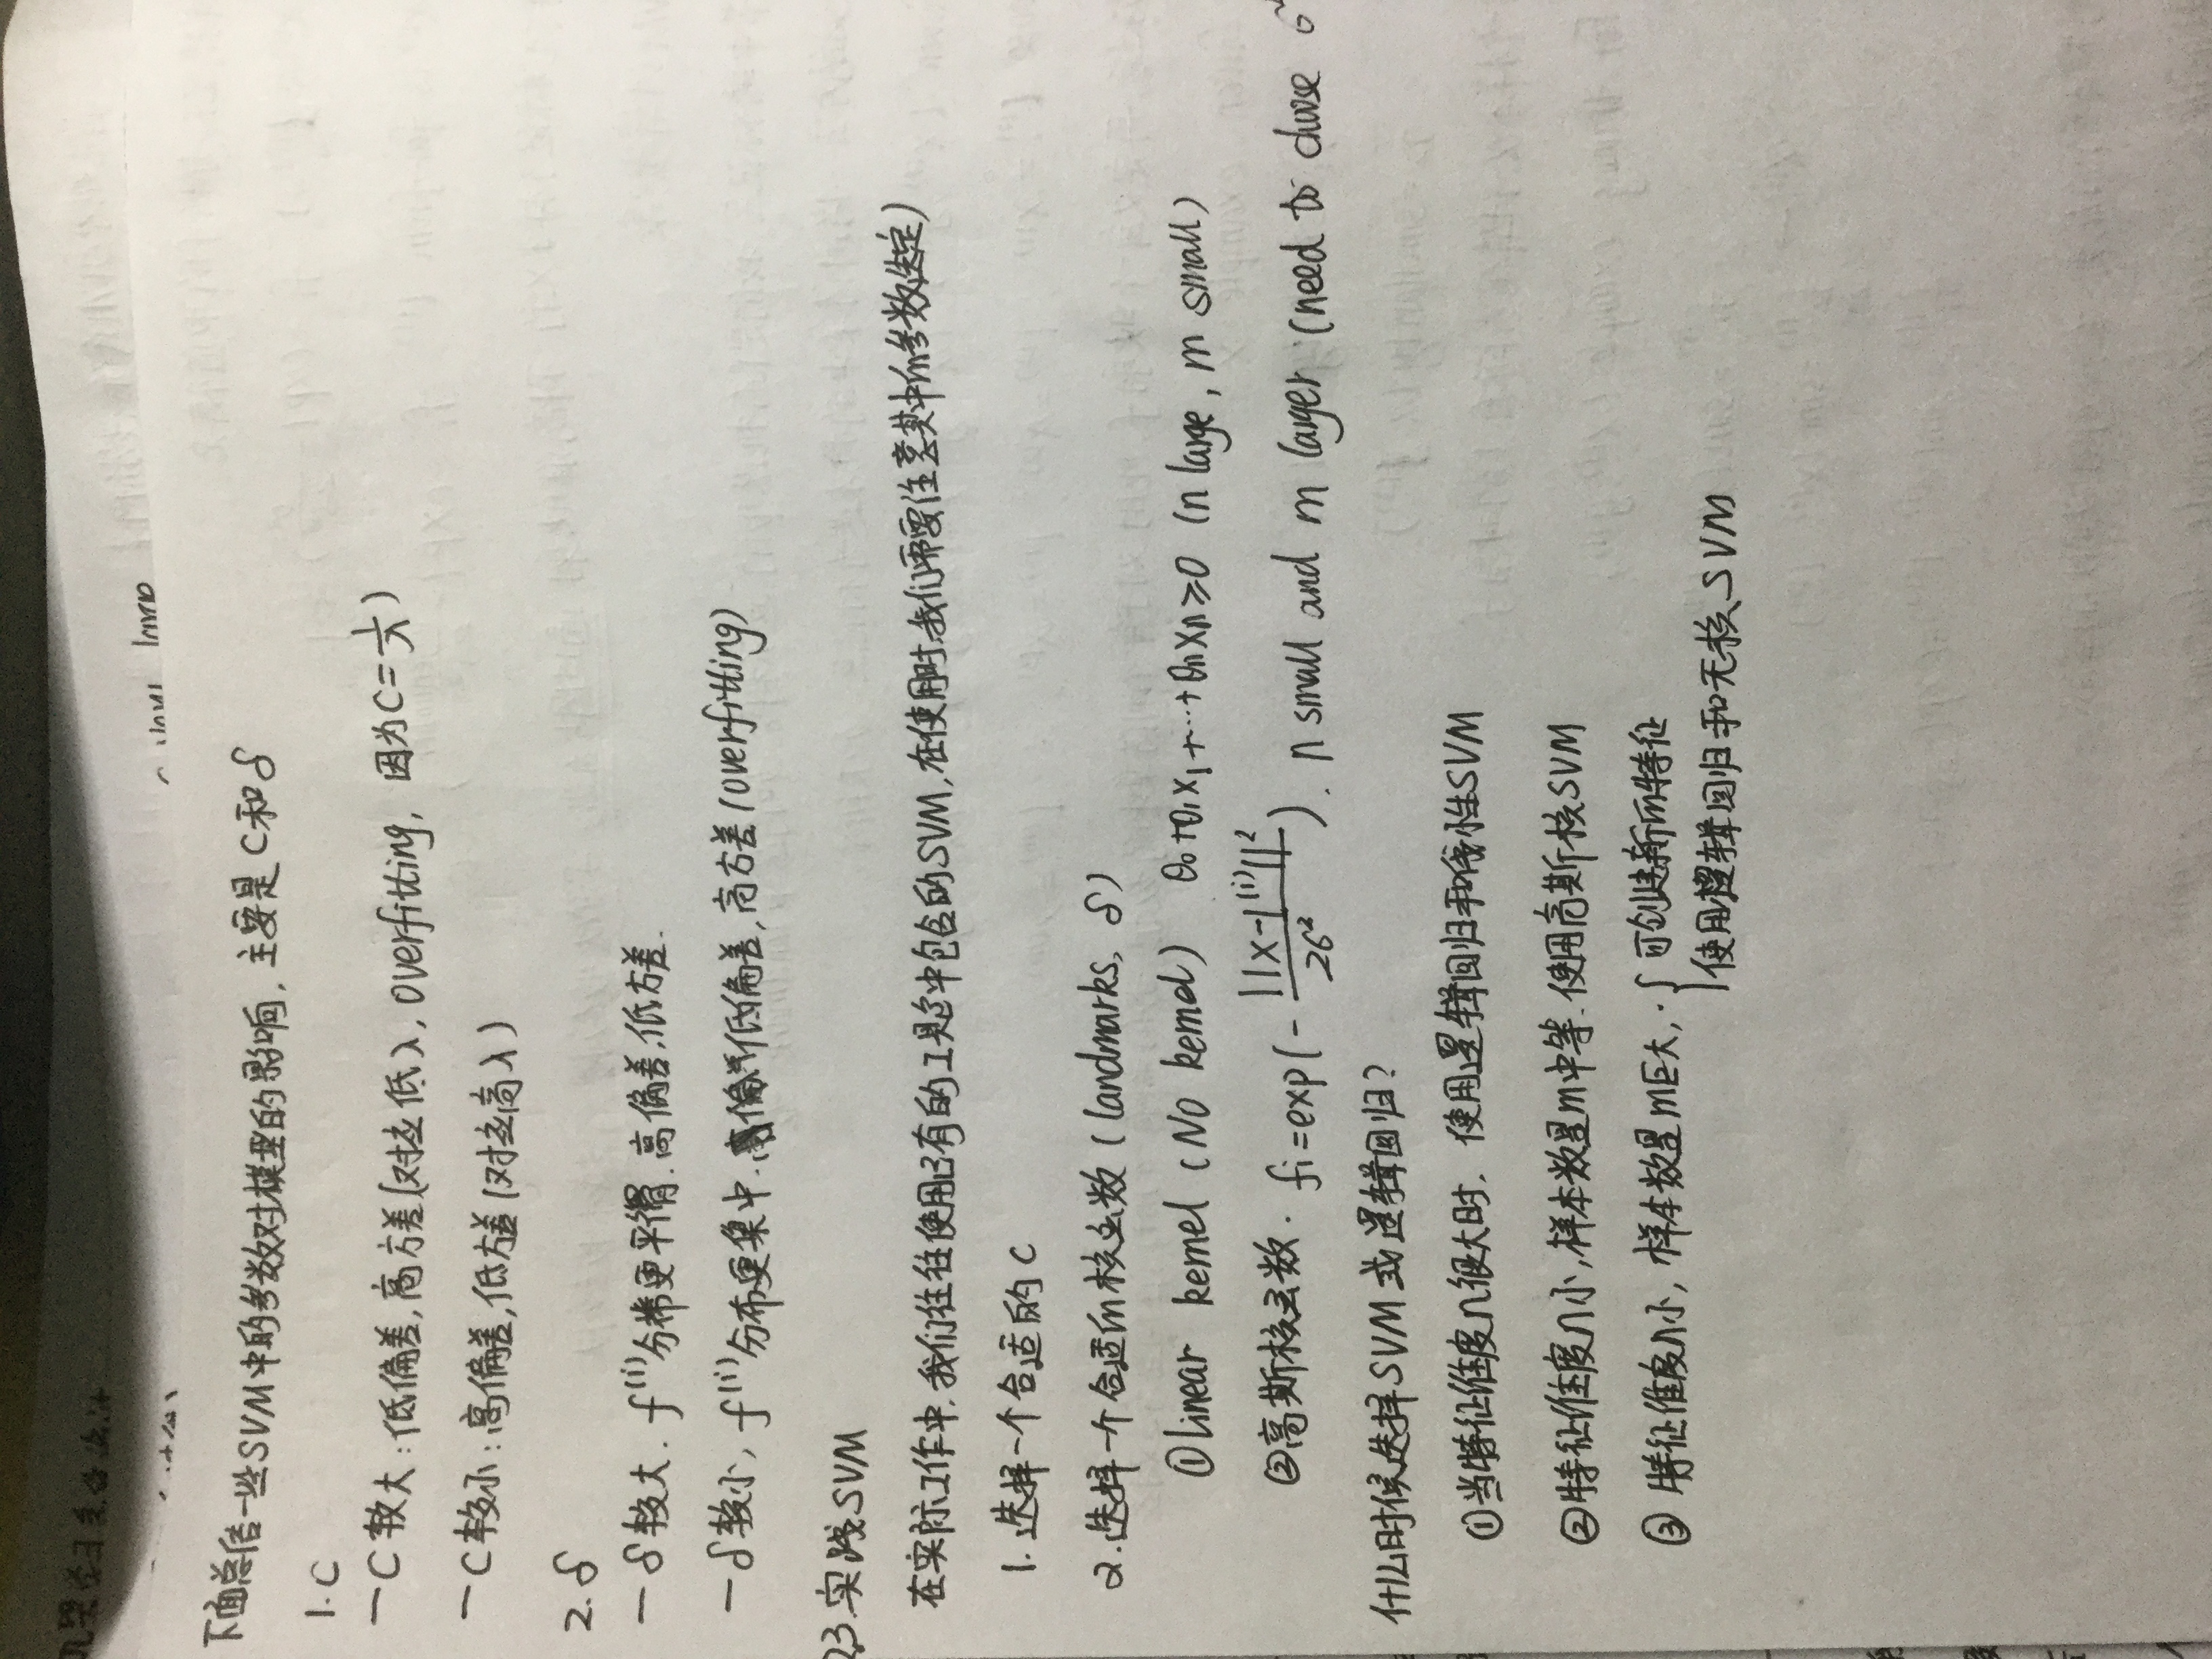 下面总结一些SVM中的参数对模型的影响,主要是C和δ
1.C
—C较大:低偏差,高方差(对应低λ,overfitting,因为C=1/λ)
—C较小:高偏差,低方差(对应高λ)
2.δ
—δ较大.f⁽ⁱ⁾分布更平滑.高偏差,低方差.
—δ较小,f⁽ⁱ⁾分布更集中.低偏差,高方差(overfitting)
2.3.实践SVM
在实际工作中,我们往往使用已有的工具包中包含的SVM,在使用时,我们需要注意其中的参数选定)
1.选择一个合适的C
2.选择一个合适的核函数(landmarks,δ)
①linear kernel (No kernel) θ₀+θ₁x₁+…+θₙxₙ≥0 (n large, m small)
②高斯核函数. f₁=exp(-||x-l⁽ⁱ⁾||²/2σ²). n small and m larger (need to choose σ²
什么时候选择SVM或逻辑回归?
①当特征维度n很大时.使用逻辑回归和线性SVM
②特征维度n小,样本数量m中等.使用高斯核SVM
③特征维度n小,样本数量m巨大,{可创建新的特征
使用逻辑回归和无核SVM